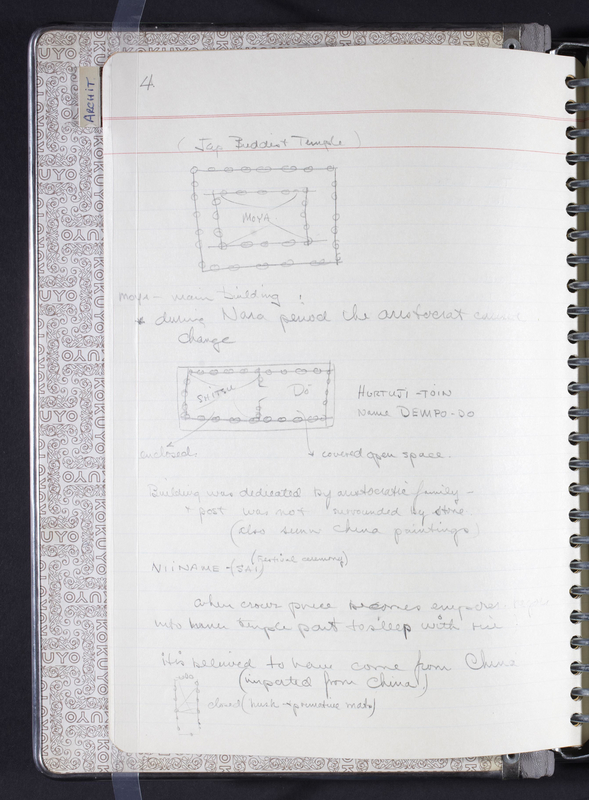 4
ARCHIT
(Jap Buddist Temple)
MOYA
moya - main building
* during Nara period the aristocrat
change
SHITSU Dō
HURYUJI - TOIN
Name DEMPO-DO
enclosed. covered open space.
Building was dedicated by aristocratic family -
post was not surrounded by stone
(also seen China paintings)
NIINAME - (SAI) (festival ceremony)
when crown prince becomes emperor
into inner temple part to sleep with
it is believed to have come from China
(imported from China)
closed (husk - primative mats)
KOKUYO